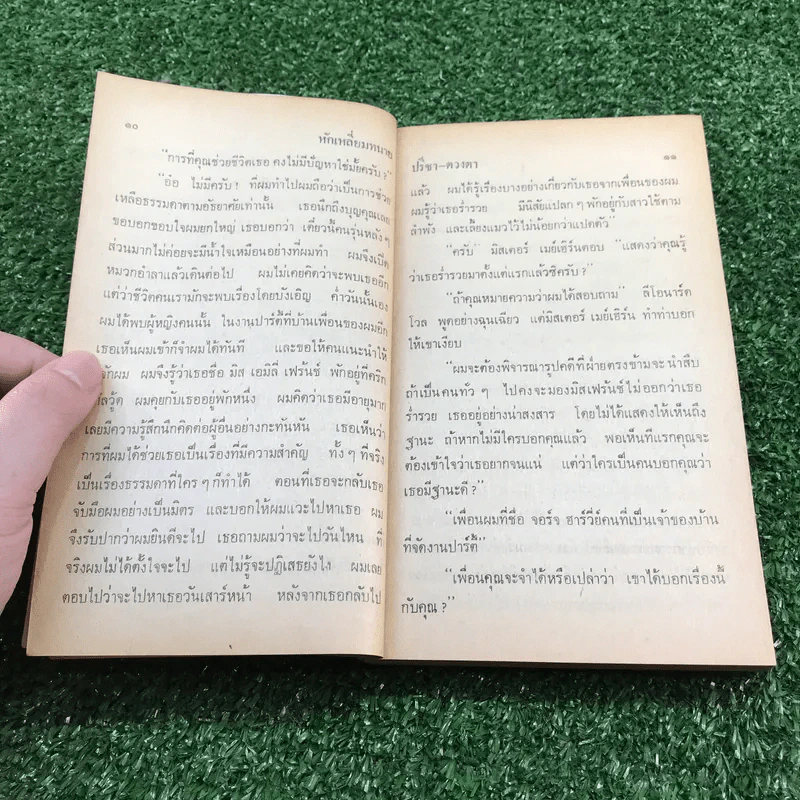 ๑๐
หักเหลี่ยมทนาย
“การที่คุณช่วยชีวิตเธอ คงไม่มีปัญหาใช่มั้ยครับ ?”
“อ๋อ ไม่มีครับ ! ที่ผมทำไปผมถือว่าเป็นการช่วย
เหลือธรรมดาตามอัธยาศัยเท่านั้น เธอนึกถึงบุญคุณเลย
ขอบอกขอบใจผมยกใหญ่ เธอบอกว่า เดี๋ยวนี้คนรุ่นหลัง ๆ
ส่วนมากไม่ค่อยจะมีน้ำใจเหมือนอย่างที่ผมทำ ผมจึงเปิด
หมวกอำลาแล้วเดินต่อไป ผมไม่เคยคิดว่าจะพบเธออีก
แต่ว่าชีวิตคนเรามักจะพบเรื่องโดยบังเอิญ ค่ำวันนั้นเอง
ผมได้พบผู้หญิงคนนั้น ในงานปาร์ตี้ที่บ้านเพื่อนของผมอีก
เธอเห็นผมเข้าก็จำผมได้ทันที และขอให้คนแนะนำให้
รู้จักผม ผมจึงรู้ว่าเธอชื่อ มิส เอมิลี่ เฟร้นซ์ พักอยู่ที่คริก
ผมคุยกับเธออยู่พักหนึ่ง ผมคิดว่าเธอคงมีอายุมาก
เลยมีความรู้สึกนึกคิดต่อผู้อื่นอย่างกะทันหัน เธอเห็นว่า
การที่ผมได้ช่วยเธอเป็นเรื่องที่มีความสำคัญ ทั้ง ๆ ที่จริง
เป็นเรื่องธรรมดาที่ใคร ๆ ก็ทำได้ ตอนที่เธอจะกลับเธอ
จับมือผมอย่างเป็นมิตร และบอกให้ผมแวะไปหาเธอ ผม
จึงรับปากว่าผมยินดีจะไป เธอถามผมว่าจะไปวันไหน ที่
จริงผมไม่ได้ตั้งใจจะไป แต่ไม่รู้จะปฏิเสธยังไง ผมเลย
ตอบไปว่าจะไปหาเธอวันเสาร์หน้า หลังจากเธอกลับไป
ปรีชา–ดวงตา
๑๑
แล้ว ผมได้รู้เรื่องบางอย่างเกี่ยวกับเธอจากเพื่อนของผม
ผมรู้ว่าเธอร่ำรวย มีนิสัยแปลก ๆ พักอยู่กับสาวใช้ตาม
ลำพัง และเลี้ยงแมวไว้ไม่น้อยกว่าแปดตัว”
“ครับ” มิสเตอร์ เมย์เฮิร์นตอบ “แสดงว่าคุณรู้
ว่าเธอร่ำรวยมาตั้งแต่แรกแล้วซีครับ ?”
“ถ้าคุณหมายความว่าผมได้สอบถาม” ลีโอนาร์ด
โวล พูดอย่างฉุนเฉียว แต่มิสเตอร์ เมย์เฮิร์น ทำท่าบอก
ให้เขาเงียบ
“ผมจะต้องพิจารณารูปคดีที่ฝ่ายตรงข้ามจะนำสืบ
ถ้าเป็นคนทั่ว ๆ ไปคงจะมองมิสเฟร้นซ์ไม่ออกว่าเธอ
ร่ำรวย เธออยู่อย่างน่าสงสาร โดยไม่ได้แสดงให้เห็นถึง
ฐานะ ถ้าหากไม่มีใครบอกคุณแล้ว พอเห็นทีแรกคุณจะ
ต้องเข้าใจว่าเธอยากจนแน่ แต่ว่าใครเป็นคนบอกคุณว่า
เธอมีฐานะดี ?”
“เพื่อนผมที่ชื่อ จอร์จ ฮาร์วี่ย์คนที่เป็นเจ้าของบ้าน
ที่จัดงานปาร์ตี้”
“เพื่อนคุณจะจำได้หรือเปล่าว่า เขาได้บอกเรื่องนี้
กับคุณ ?”